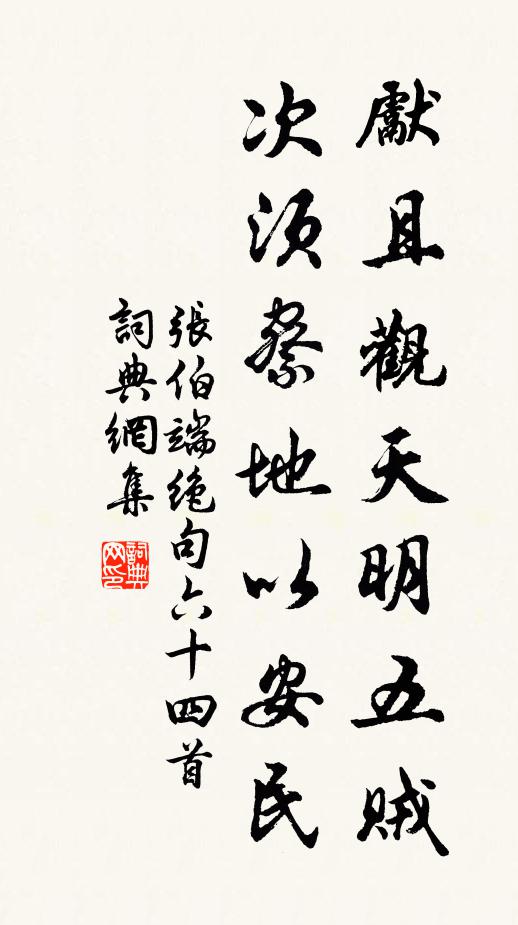 獻且觀天明五賊
次須察地以安民
張伯端絕句六十四首
詞典網集
詞典网印